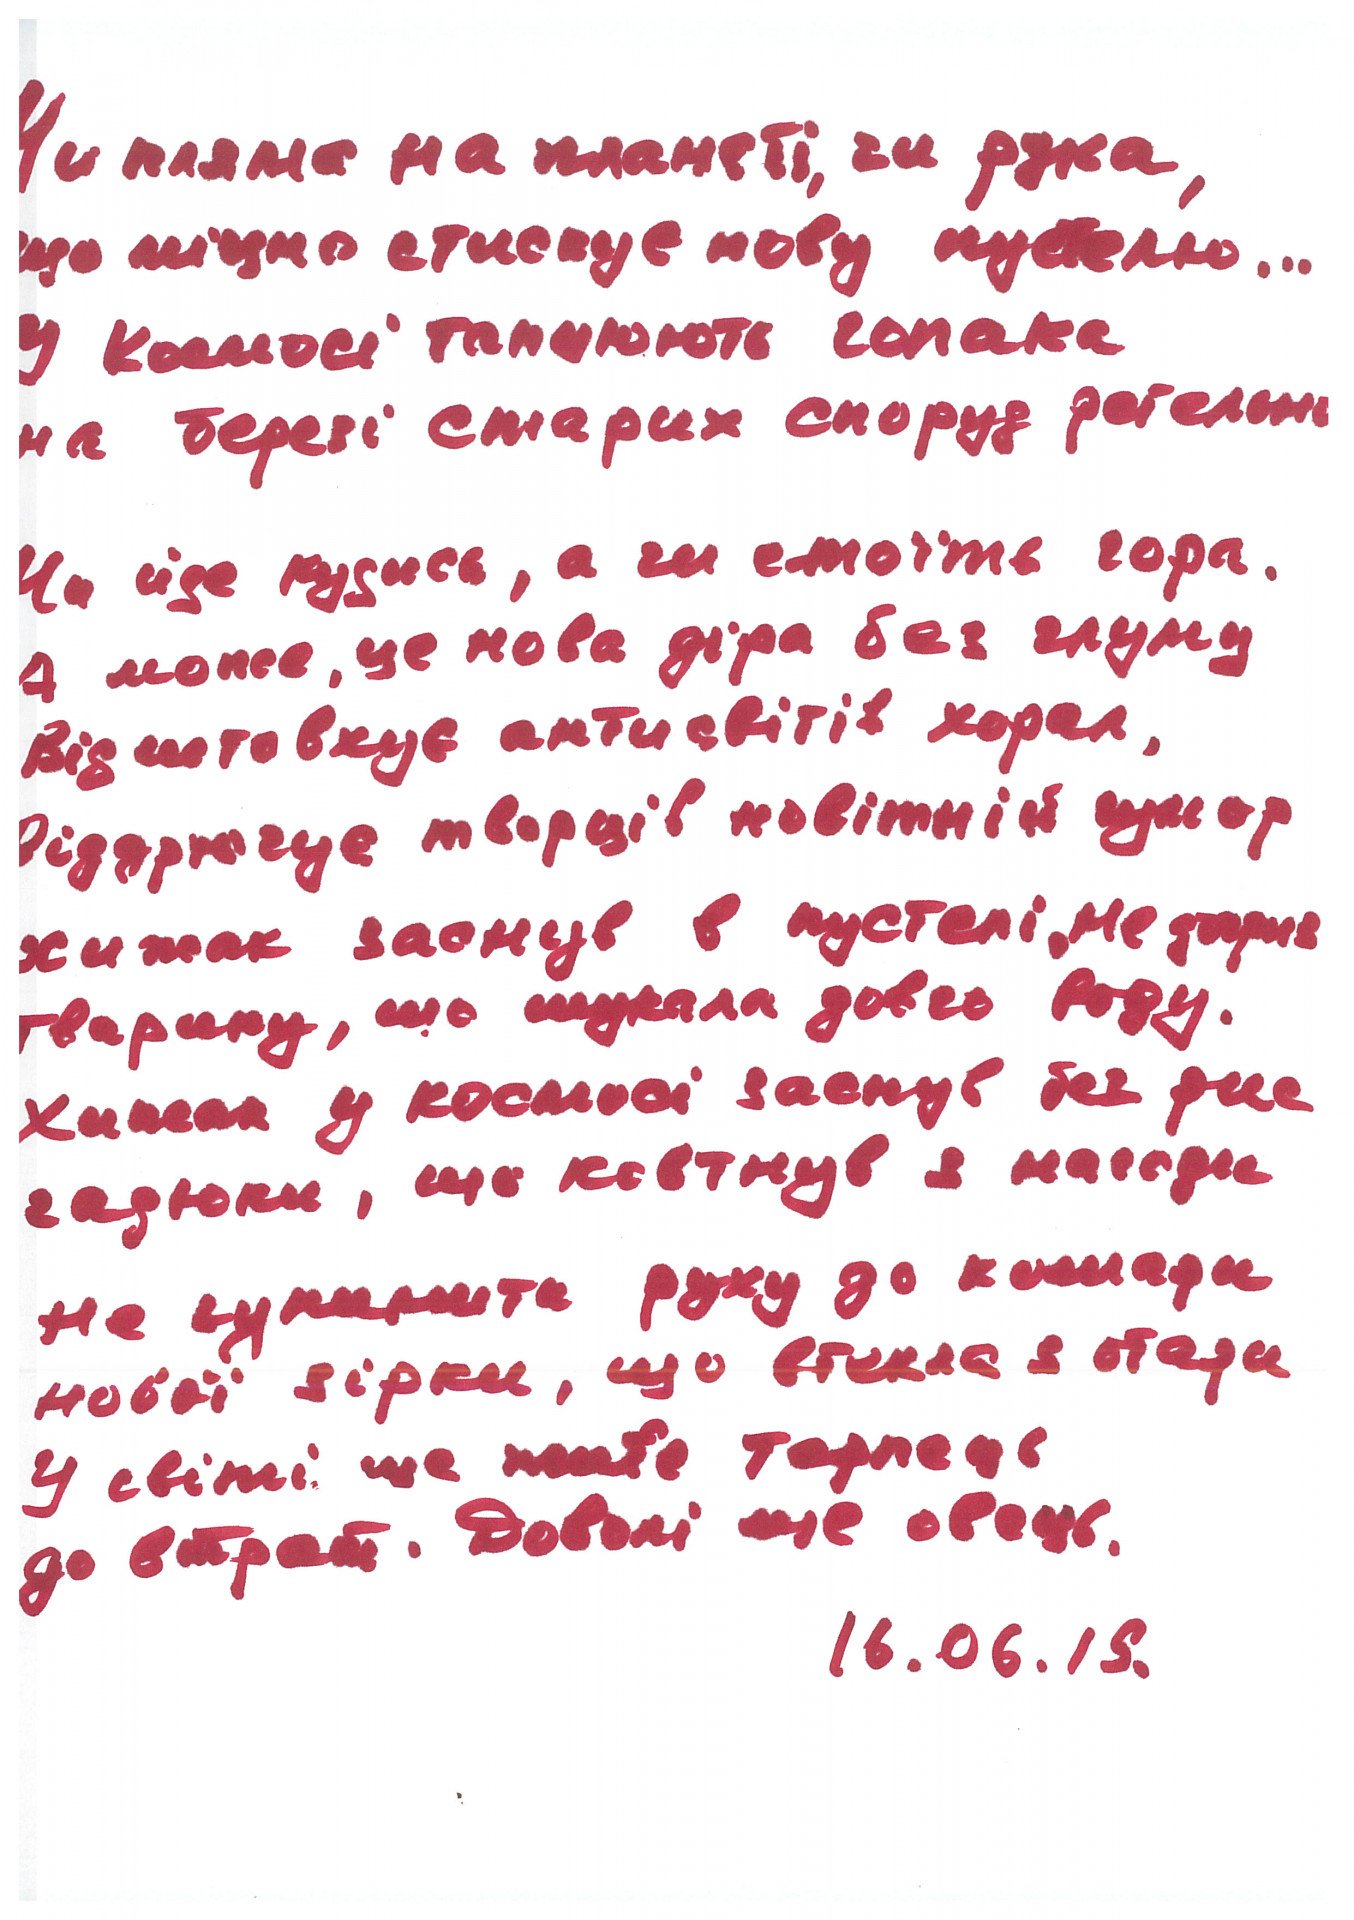 Чи пляма на планеті, чи рука,
що міцно стискує нову пустелю...
У Космосі танцюють гопака
на березі старих споруд ретельно
Чи йде кудись, а чи стоїть гора.
А може, це нова діра без глуму
Відштовхує антисвітів хорал,
Відпрючує творців новітній цукор
хижак заснув в пустелі, не
тварину, що шукала довго воду.
Хижак у космосі заснув без
гадюки, що ковтнув з нагоди
Не зупинити руху до комади
нової зірки, що втікла з отари
У світі ще терпець
до втрат. Доволі ще овець.
16.06.15.